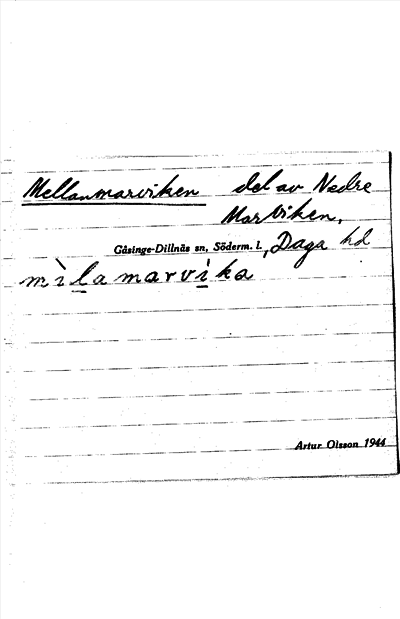 Mellanmarviken del av Nedre
Marviken,
Gåsinge-Dillnäs sn, Söderm. l., Daga hd
mìlamarvi̍ka
Artur Olsson 1944